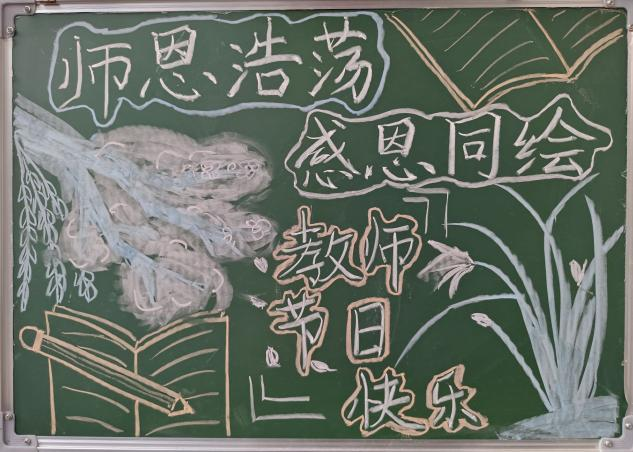 师恩浩荡
感恩同绘
教师
节日
快乐